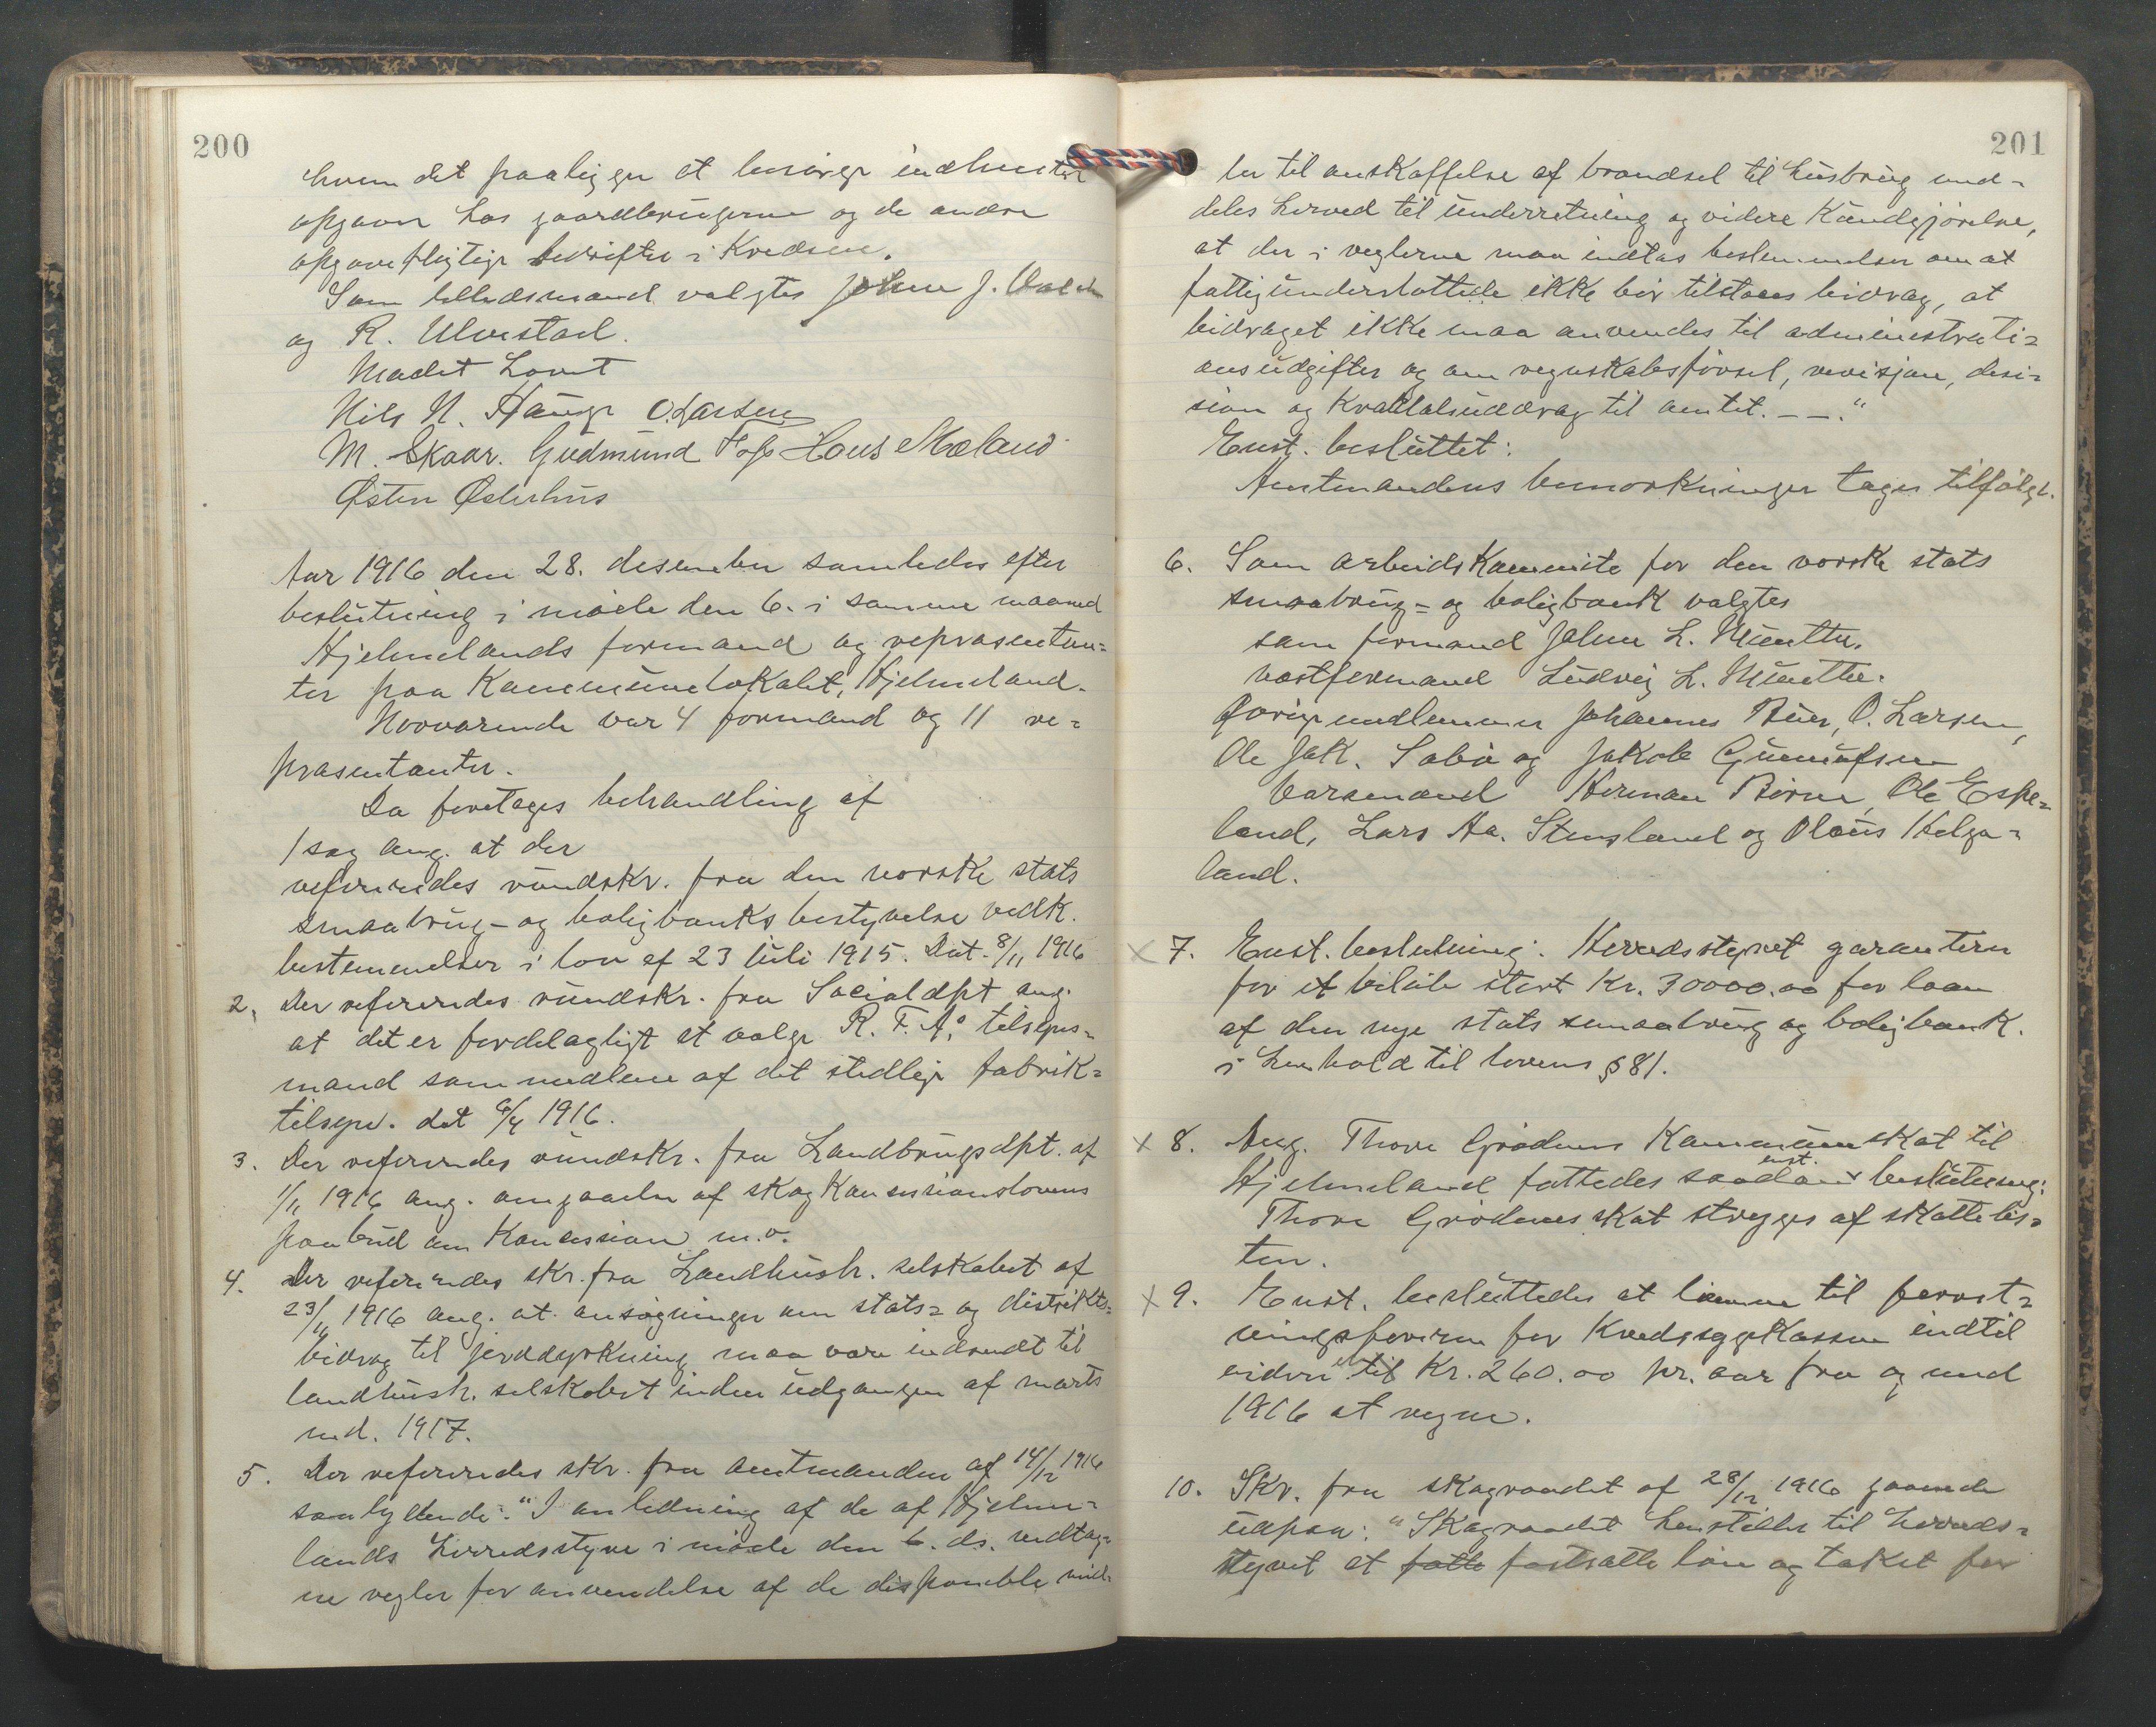 200
hvem det paaligger at besørge indhentet
opgaver hos gaardbrugerne og de andre
opgavepligtige bedrifter i Kredsen.
Som tillidsmænd valgtes John J.
og R. Ulvestad.
Mødet hævt
Nils N. Hauge O. Larsen
M. Skaar. Gudmund Hans Mæland
Østen Østerhus
Aar 1916 den 28. desember samledes efter
beslutning i møde den 6. i samme maaned
Hjelmelands formænd og repræsentan-
ter paa Kommunelokalet, Hjelmeland.
Nærværende var 4 formænd og 11 re-
præsentanter.
Da foretages behandling af
1 sag ang. at der
refereredes rundskr. fra den norske stats
smaabrug- og boligbanks bestyrelse vedk.
bestemmelser i lov af 23 juli 1915. Dat. 8/11 1916
2. Der refereredes rundskr. fra Socialdpt ang.
at det er fordelagtigt at vælge R. F. A's tilsyns-
mand som medlem af det stedlige fabrik-
tilsyn. dat 6/4 1916.
3. Der refereredes rundskr. fra Landbrugsdpt. af
1/11 1916 ang. omgaaelse af skogkonsesjonslovens
paabud om Konsession m.v.
4. Der refereredes skr. fra Landhush. selskabet af
23/11 1916 ang. at ansøgninger om stats- og distrikts-
bidrag til jorddyrkning maa være indsendt til
landhush. selskabet inden udgangen af marts
md. 1917.
5. Der refereredes skr. fra amtmanden af 14/12 1916
saalydende: "I anledning af de af Hjelme-
lands herredsstyre i møde den 6. ds. vedtag-
ne regler for anvendelse af de disponible mid-
201
ler til anskaffelse af brændsel til husbrug med-
deles herved til underretning og videre Kundgjørelse,
at der i reglerne maa indtas bestemmelser om at
fattigunderstøttede ikke bør tilstaaes bidrag, at
bidraget ikke maa anvendes til administrati-
onsudgifter og om regnskabsførsel, revisjon, desi-
sion og Kvartalsuddrag til amtet. — —."
Enst. besluttet:
Amtmandens bemerkninger tages tilfølge.
6. Som arbeidskommite for den norske stats
smaabrug- og boligbank valgtes
som formand John L. Munthe.
næstformand Ludvig L. Munthe.
Øvrige medlemmer Johannes Buer, O. Larsen,
Ole Jak. Sabø og Jakob Gunnufsen
Varamænd Herman Børne, Ole Espe-
land, Lars Aa. Stensland og Olaus Helga-
land.
x 7. Enst. beslutning: Herredsstyret garanterer
for et beløb stort Kr. 30000.00 for laan
af den nye stats smaabrug og boligbank.
i henhold til lovens § 81.
x 8. Ang. Thore Grødems Kommuneskat til
Hjelmeland fattedes saadan enst. beslutning:
Thore Grødems skat stryges af skattelis-
ten.
x 9. Enst. besluttedes at lønnen til forret-
ningsføreren for Kredssygekassen indtil
videre til Kr. 260.00 pr. aar fra og med
1916 at regne.
10. Skr. fra skograadet af 28/12 1916 gaaende
udpaa: "Skograadet henstiller til herreds-
styret at fatte fastsætte løn og takst for